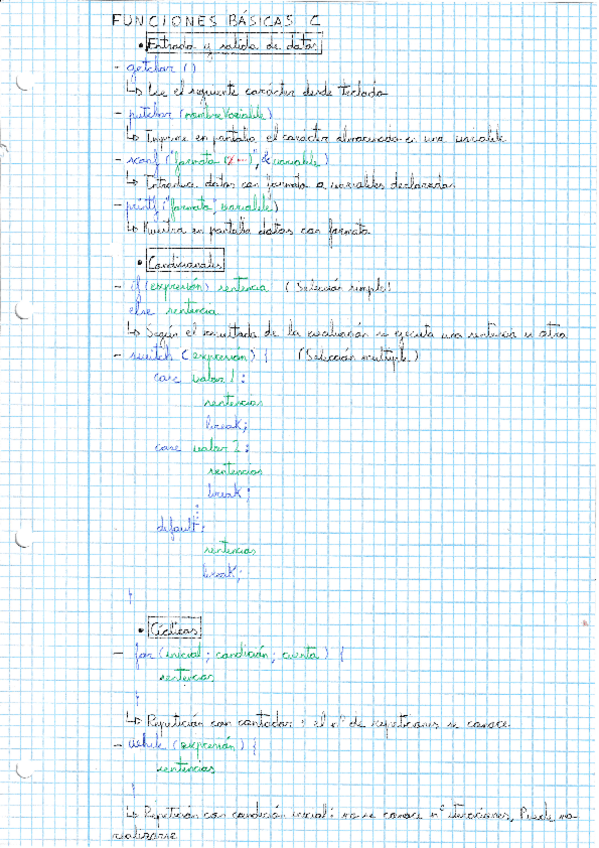 FUNCIONES BÁSICAS C
• Entrada y salida de datos
- getchar ()
↳ Lee el siguiente carácter desde teclado
- putchar (nombreVariable)
↳ Imprime en pantalla el carácter almacenado en una variable
- scanf ("formato (%...)", & variable)
↳ Introduce datos con formato a variables declaradas
- printf ("formato", variable)
↳ Muestra en pantalla datos con formato
• Condicionales
- if (expresión) sentencia (Selección simple)
else sentencia
↳ Según el resultado de la evaluación se ejecuta una sentencia u otra
- switch (expresión) { (Selección multiple)
case valor 1 :
sentencias
break;
case valor 2 :
sentencias
break;
⋮
default:
sentencias
break;
}
• Cíclicas
- for (inicial ; condición ; cuenta) {
sentencias
}
↳ Repetición con contador : el nº de repeticiones se conoce
- while (expresión) {
sentencias
}
↳ Repetición con condición inicial: no se conoce nº iteraciones, Puede no
realizarse